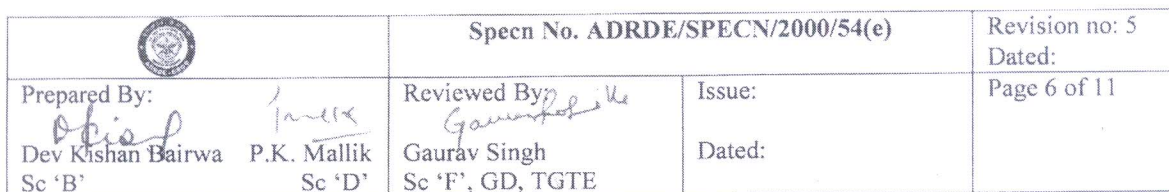 Specn No. ADRDE/SPECN/2000/54(e)
Revision no: 5
Dated:
Prepared By:
Dev Kishan Bairwa P.K. Mallik
Sc ‘B’ Sc ‘D’
Reviewed By:
Gaurav Singh
Sc ‘F’, GD, TGTE
Issue:
Dated:
Page 6 of 11